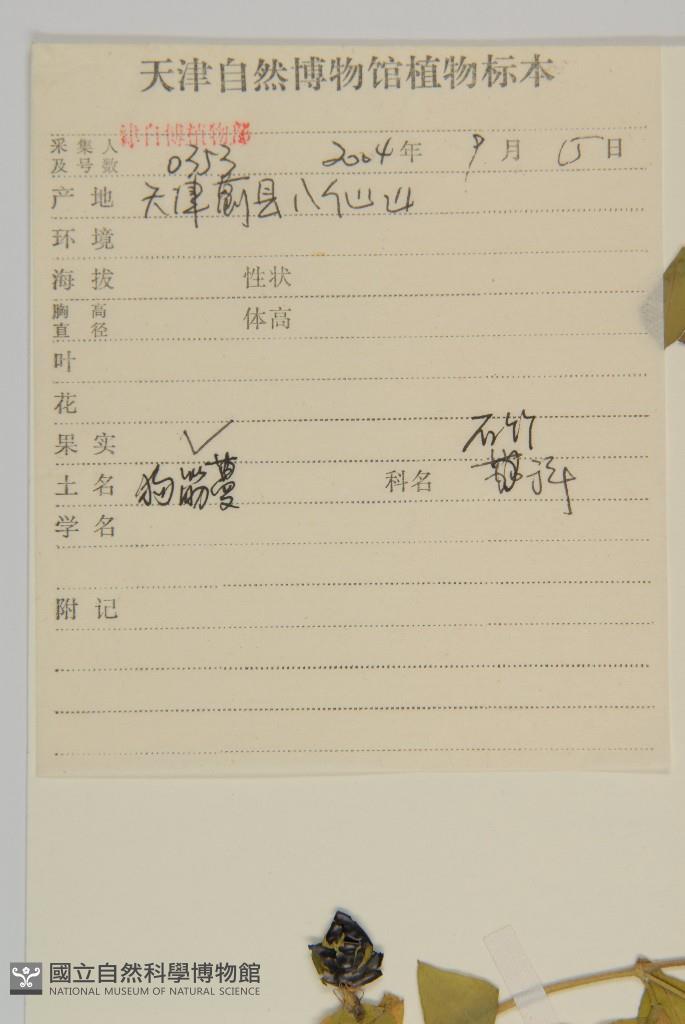 天津自然博物馆植物标本
津自博植物部
采集人及号数 0353 2004年 9月 15日
产地 天津蓟县八仙山
环境
海拔 性状
胸高直径 体高
叶
花
果实 ✓
土名 狗筋蔓 科名 石竹科
学名
附记
國立自然科學博物館
NATIONAL MUSEUM OF NATURAL SCIENCE